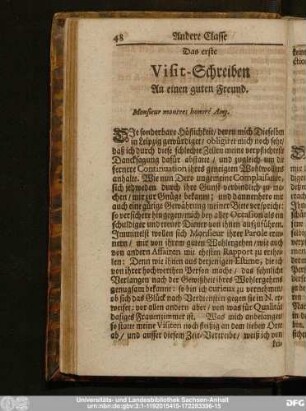 48 Andere Classe
Das erste
Visit-Schreiben
An einen guten Freund.
Monsieur mon tres honoré Amy.
Mit sonderbare Höflichkeit / deren mich Dieselben
in Leipzig gewürdiget / obligiret mich noch sehr /
daß ich durch diese schlechte Zeilen meine verpflichtete
Dancksagung dafür abstatte / und zugleich um
fernere Continuation ihres geneigten Wohlwollens
anhalte. Wie nun Dero ungemeine Complaisance,
sich jedweden durch ihre Gunst verbindlich zu ma-
chen / mir zur Gnüge bekannt; und dannenhero mir
auch eine gütige Gewährung meiner Bitte verspricht:
so versichere hingegen mich bey aller Occasion als ein
schuldigster und treuer Diener von ihnen aufzuführen.
Immittelst wollen sich Monsieur ihrer Parole erin-
nern / mir von ihrem guten Wohlergehen / wie auch
von andern Affairen mit ehesten Rapport zu erthei-
len: Denn wie ihnen aus derjenigen Estime, die ich
von ihrer hochwerthen Person mache / das sehnliche
Verlangen nach der Gewißheit ihres Wohlergehens
genugsam bekannt: so bin ich curieux zu vernehmen /
ob sich das Glück nach Verdiensten gegen sie in N. er-
weiset: vor allen andern aber / von was für Qualität
dasiges Frauenzimmer ist. Was mich anbelanget /
so statte meine Visiten noch stetig an dem lieben Orte
ab / und ausser diesem Zeit-Vertreibe / weiß ich von
Universitäts- und Landesbibliothek Sachsen-Anhalt
DFG